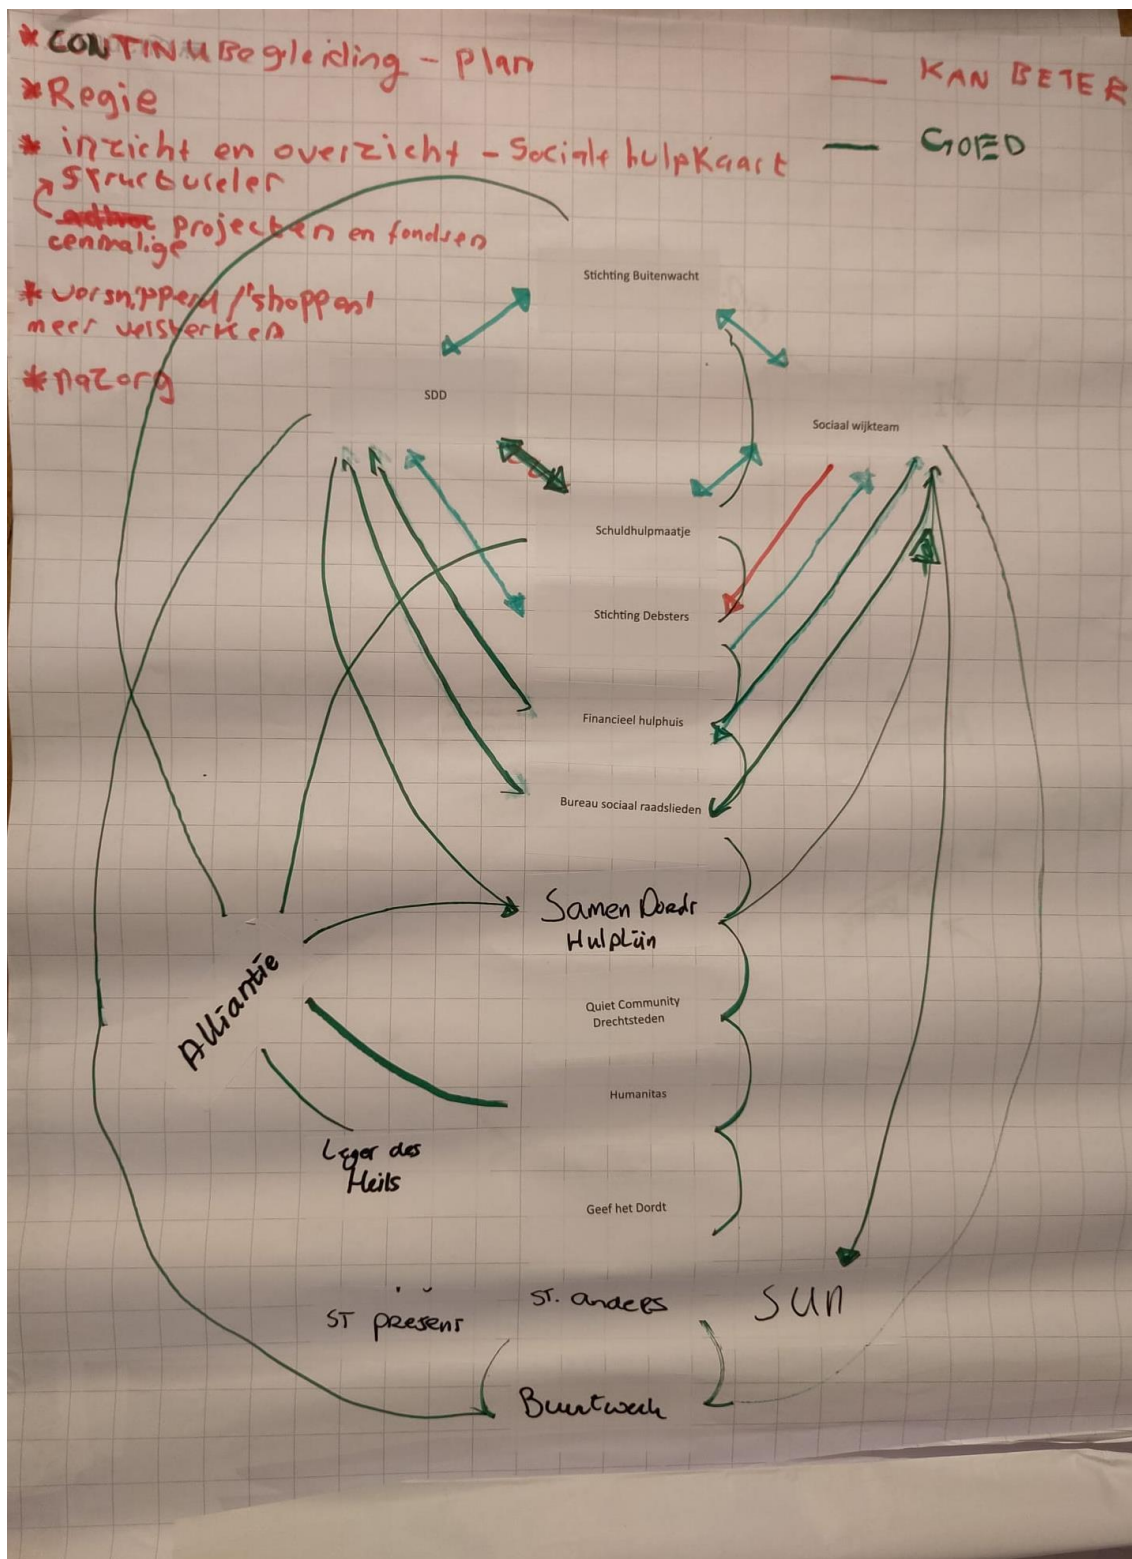 * CONTINU Begeleiding - Plan
* Regie
* inzicht en overzicht - Sociale hulpkaart
structureler
adhoc projecten en fondsen
eenmalige
* versnipperd / 'shoppen'
meer versterken
* nazorg
— KAN BETER
— GOED
Stichting Buitenwacht
SDD
Sociaal wijkteam
Schuldhulpmaatje
Stichting Debsters
Financieel hulphuis
Bureau sociaal raadslieden
Samen Doedr
Hulplijn
Alliantie
Quiet Community
Drechtsteden
Humanitas
Leger des
Heils
Geef het Dordt
ST presens
ST. anders
SUN
Buurtwerk